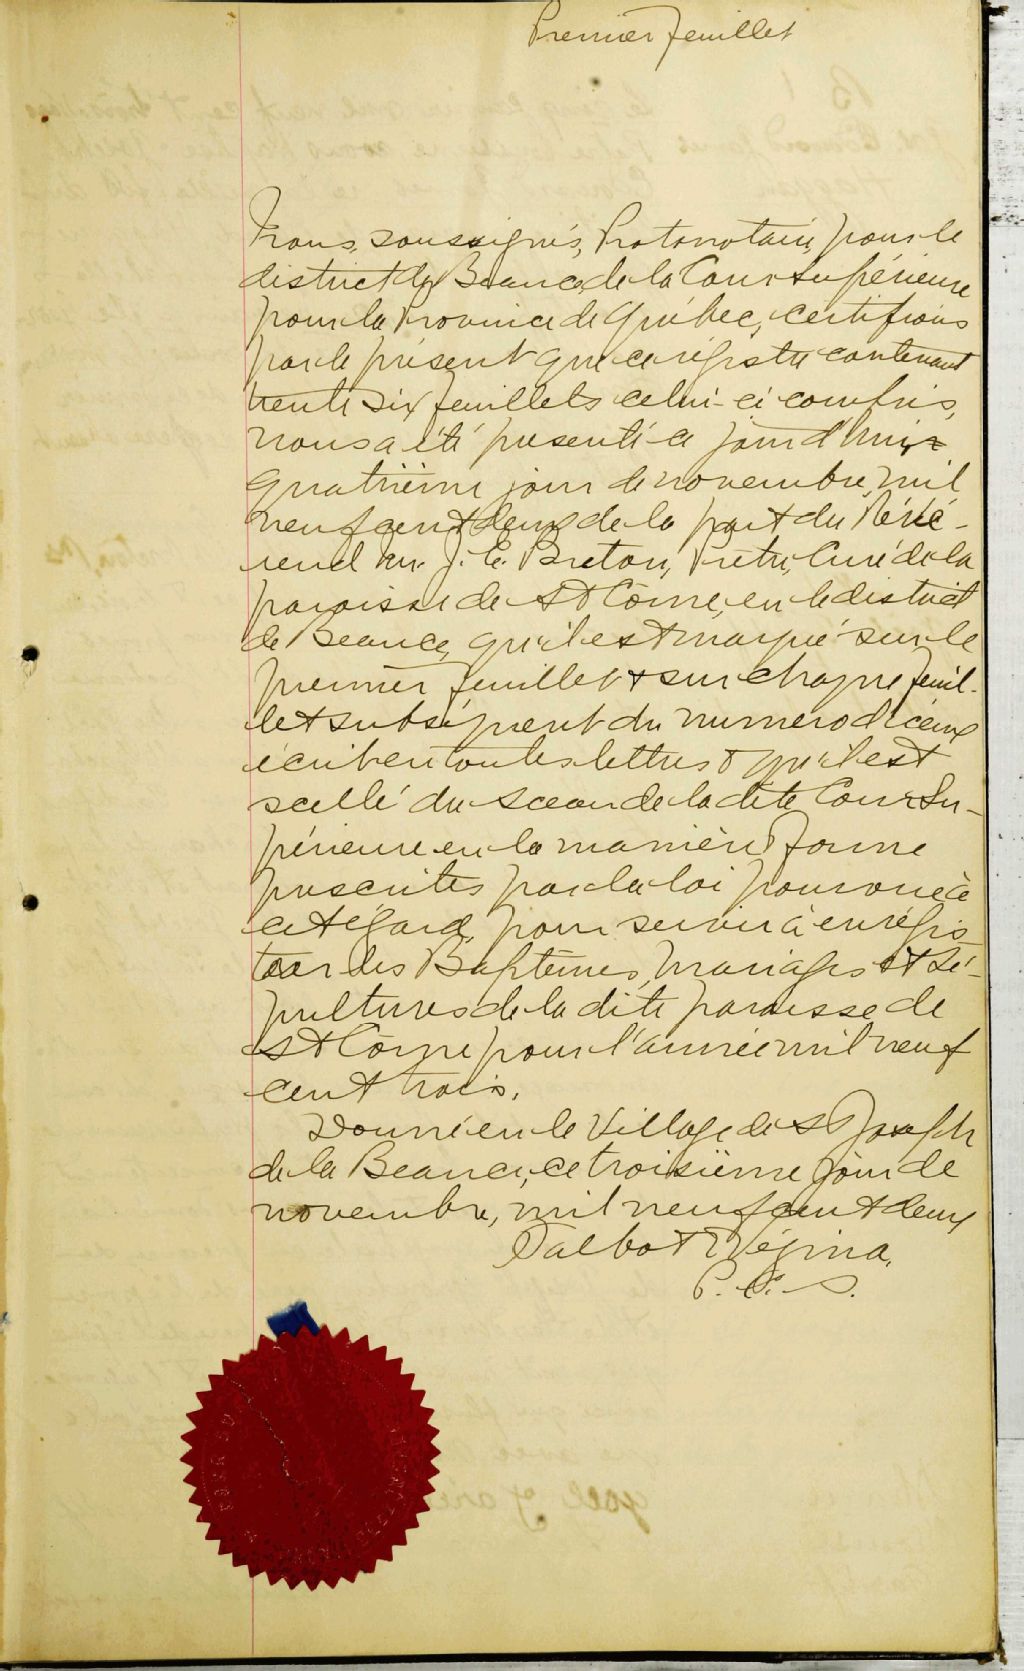 Premier feuillet
Nous, soussignés, Protonotaire, pour le
district de Beauce, de la Cour supérieure
pour la Province de Québec, certifions
par le présent que ce régistre contenant
trente six feuillets celui-ci compris,
nous a été présenté ce jourd'hui,
quatrième jour de novembre, mil
neuf cent deux de la part du Révé-
rend M. J. E. Breton, Prêtre, Curé de la
paroisse de St Côme, en le district
de Beauce, qu'il est marqué sur le
premier feuillet & sur chaque feuil-
let subséquent du numero d'iceux
écrit en toutes lettres & qu'il est
scellé du sceau de la dite Cour Su-
périeure en la manière & forme
prescrites par la loi pourvue à
cet égard, pour servir à enrégis
trer les Baptêmes, Mariages et Sé-
pultures de la dite paroisse de
St Côme pour l'année mil neuf
cent trois.
Donné en le Village de St Joseph
de la Beauce, ce troisième jour de
novembre, mil neuf cent deux
Talbot & Vézina,
P. C. S.